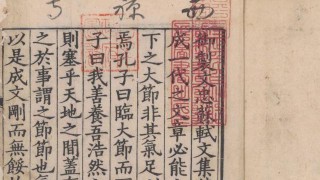 御製文忠蘇軾文集
成一代之文章必能
下之大節非其氣足
焉孔子曰臨大節而
子曰我善養吾浩然
則塞乎天地之間蓋
之於事謂之節節也
以是成文剛而無餒